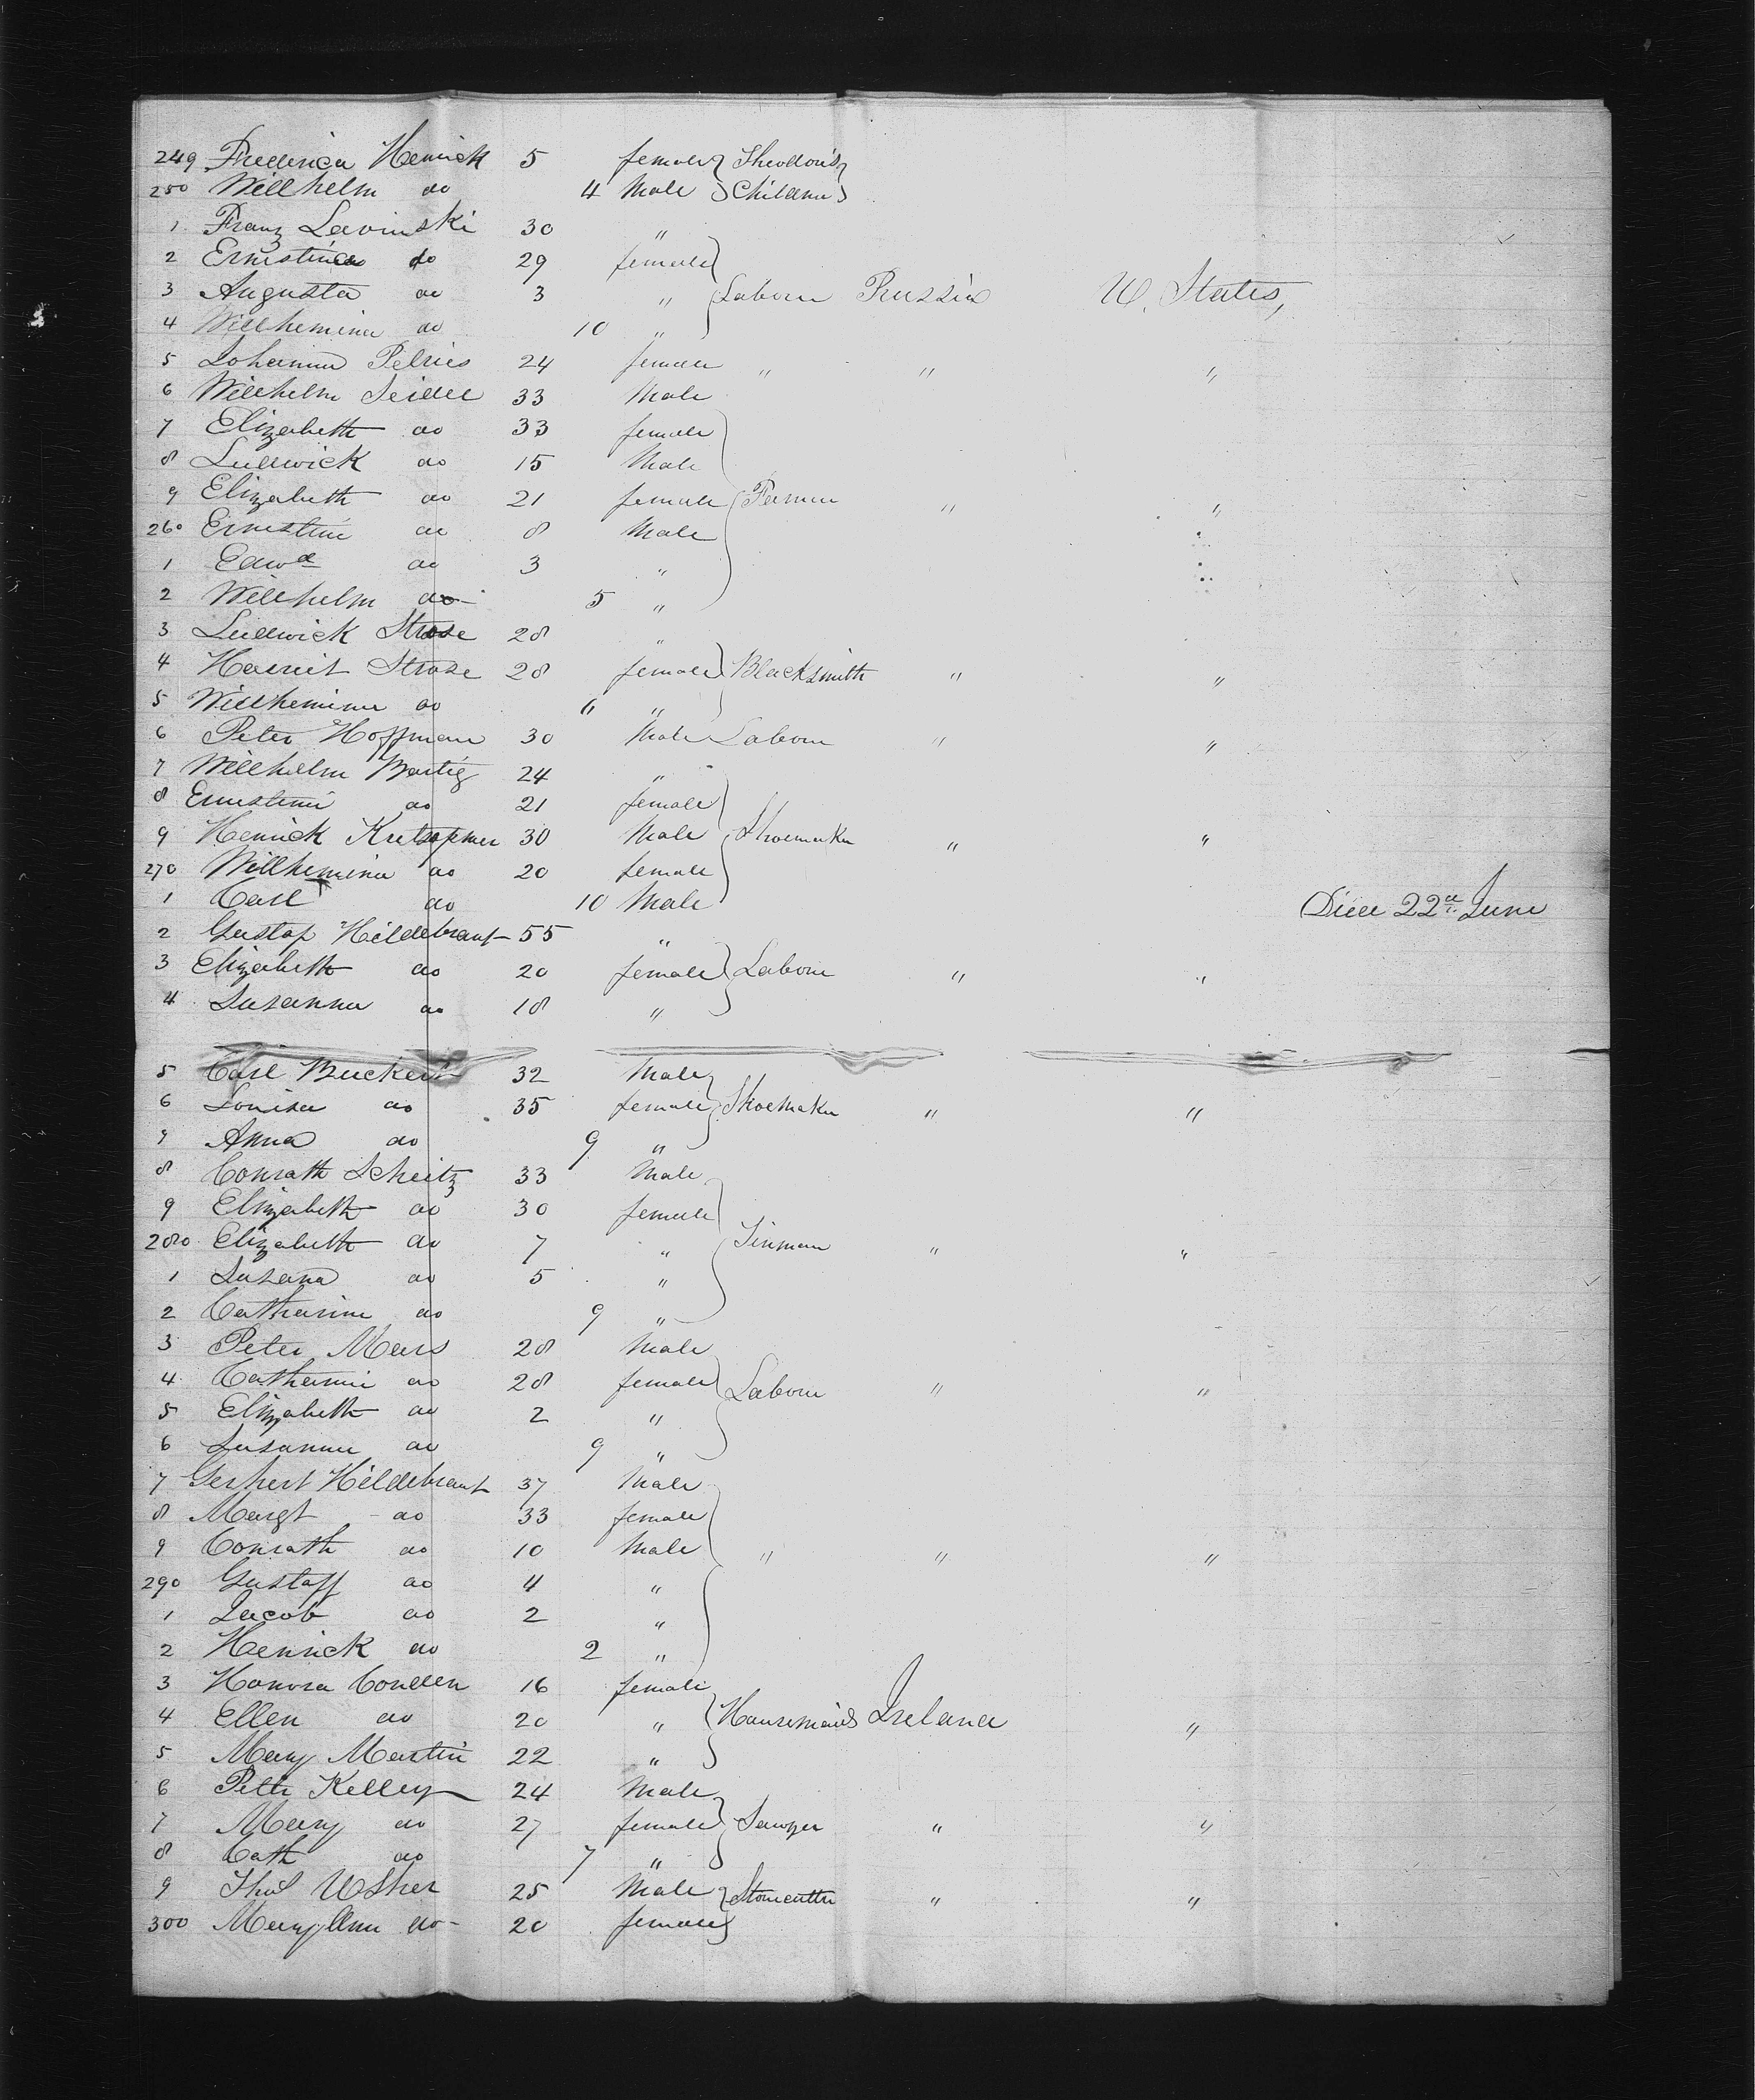 249 Frederica Henrick 5 female } Theodor's }
250 Willhelm do 4 Male } Children }
1 Franz Lavinski 30 "
2 Ernistina do 29 female }
3 Augusta do 3 " } Labourer Prussia U. States,
4 Willhemina do 10 "
5 Johanna 24 female " " "
6 Willhelm Seidel 33 Male
7 Elizabeth do 33 female
8 Ludwick do 15 Male
9 Elizabeth do 21 female } Farmer " "
260 Ernestine do 8 Male
1 Edwd do 3 "
2 Willhelm do 5 "
3 Ludwick Strose 28 "
4 Harriet Strose 28 female } Blacksmith " "
5 Willhemina do 6 "
6 Peter Hoffman 30 Male Labour " "
7 Willhelm Bartig 24 "
8 Ernestine do 21 female
9 Henrick 30 Male } Shoemaker " "
270 Willhemina do 20 female
1 Carl do 10 Male Died 22d June
2 Gustaf Hildebrant 55 "
3 Elizabeth do 20 female } Labour " "
4 Susanna do 18 "
5 Carl Buckert 32 Male
6 Louisa do 35 female } Shoemaker " "
7 Anna do 9 "
8 Conrath Scheitz 33 Male
9 Elizabeth do 30 female
280 Elizabeth do 7 " } Tinman " "
1 Susana do 5 "
2 Catharine do 9 "
3 Peter Mers 28 Male
4 Catharine do 28 female } Labour " "
5 Elizabeth do 2 "
6 Susanna do 9 "
7 Gerhert Hildebrant 37 Male
8 Margt do 33 female
9 Conrath do 10 Male } " " "
290 Gustaff do 4 "
1 Jacob do 2 "
2 Henrick do 2 "
3 Honora Conden 16 female
4 Ellen do 20 " } Housemaids Ireland "
5 Mary Martin 22 "
6 Petr Kelley 24 Male
7 Mary do 27 female } Sawyer " "
8 Cath do 7 "
9 Thos Usher 25 Male } Stonecutter " "
300 Mary Ann do 20 female }